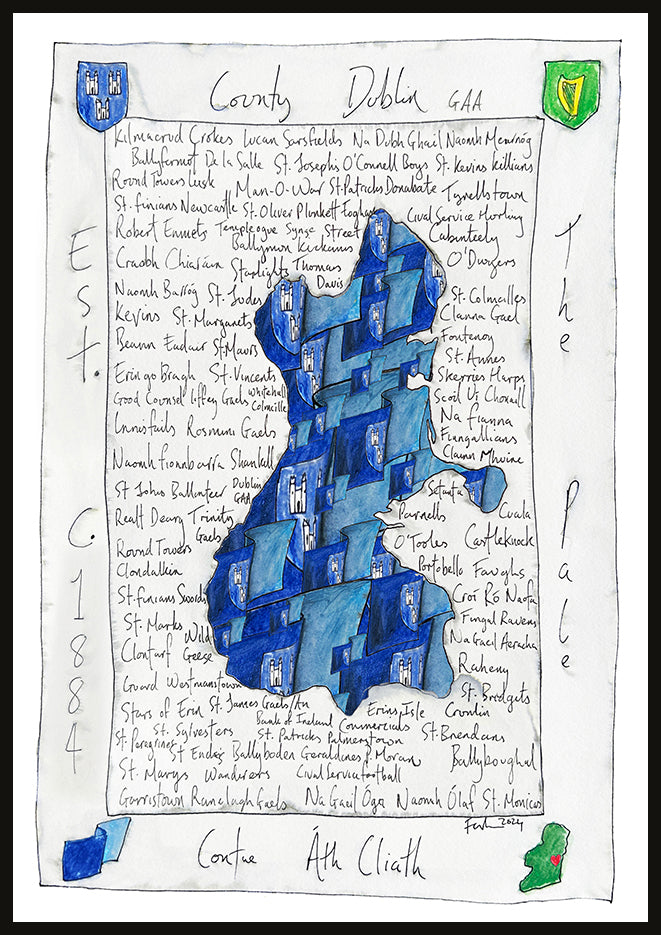 County Dublin GAA
Est. C. 1884
The Pale
Kilmacrud Crokes Lucan Sarsfields Na Dubh Ghail Naomh Mearnóg
Ballyfermot De la Salle St. Josephs O'Connell Boys St. Kevins Killians
Round Towers Lusk Man-O-War St. Patricks Donabate Tyrellstown
St. finians Newcastle St. Oliver Plunkett Eoghan Civil Service Hurling
Robert Emmets Templeogue Synge Street Cabinteely
Ballymun Kickhams O'Dwyers
Craobh Chiaráin Starlights Thomas
Davis
Naomh Barróg St. Judes St. Colmcilles
Kevins St. Margarets Clanna Gael
Fontenoy
Beann Eadair St. Maurs St. Annes
Erin go Bragh St. Vincents Skerries Harps
Good Counsel Liffey Gaels Whitehall Colmcille Scoil Uí Chonaill
Innisfails Rosmini Gaels Na Fianna
Fingallians
Naomh fionnbarra Shankill Clann Mhuire
St Johns Ballinteer Dublin GAA Setanta Cuala
Realt Dearg Trinity Gaels Parnells
Round Towers O'Tooles Castleknock
Clondalkin Portobello Faughs
St. finians Swords Croí Ró Naofa
St. Marks Wild Fingal Ravens
Clontarf Geese Na Gaeil Aeracha
Raheny
Guard Westmanstown St. Bridgets
Stars of Erin St. James Gaels/An Erins Isle Crumlin
Bank of Ireland Commercials St. Brendans
St. Peregrines St. Sylvesters St. Patricks Palmerstown
St Endas Ballyboden Geraldines P. Moran Ballyboughal
St. Marys Wanderers Civil Service football
Garristown Ranelagh Gaels Na Gaeil Óga Naomh Ólaf St. Monicas
2024
Contae Áth Cliath